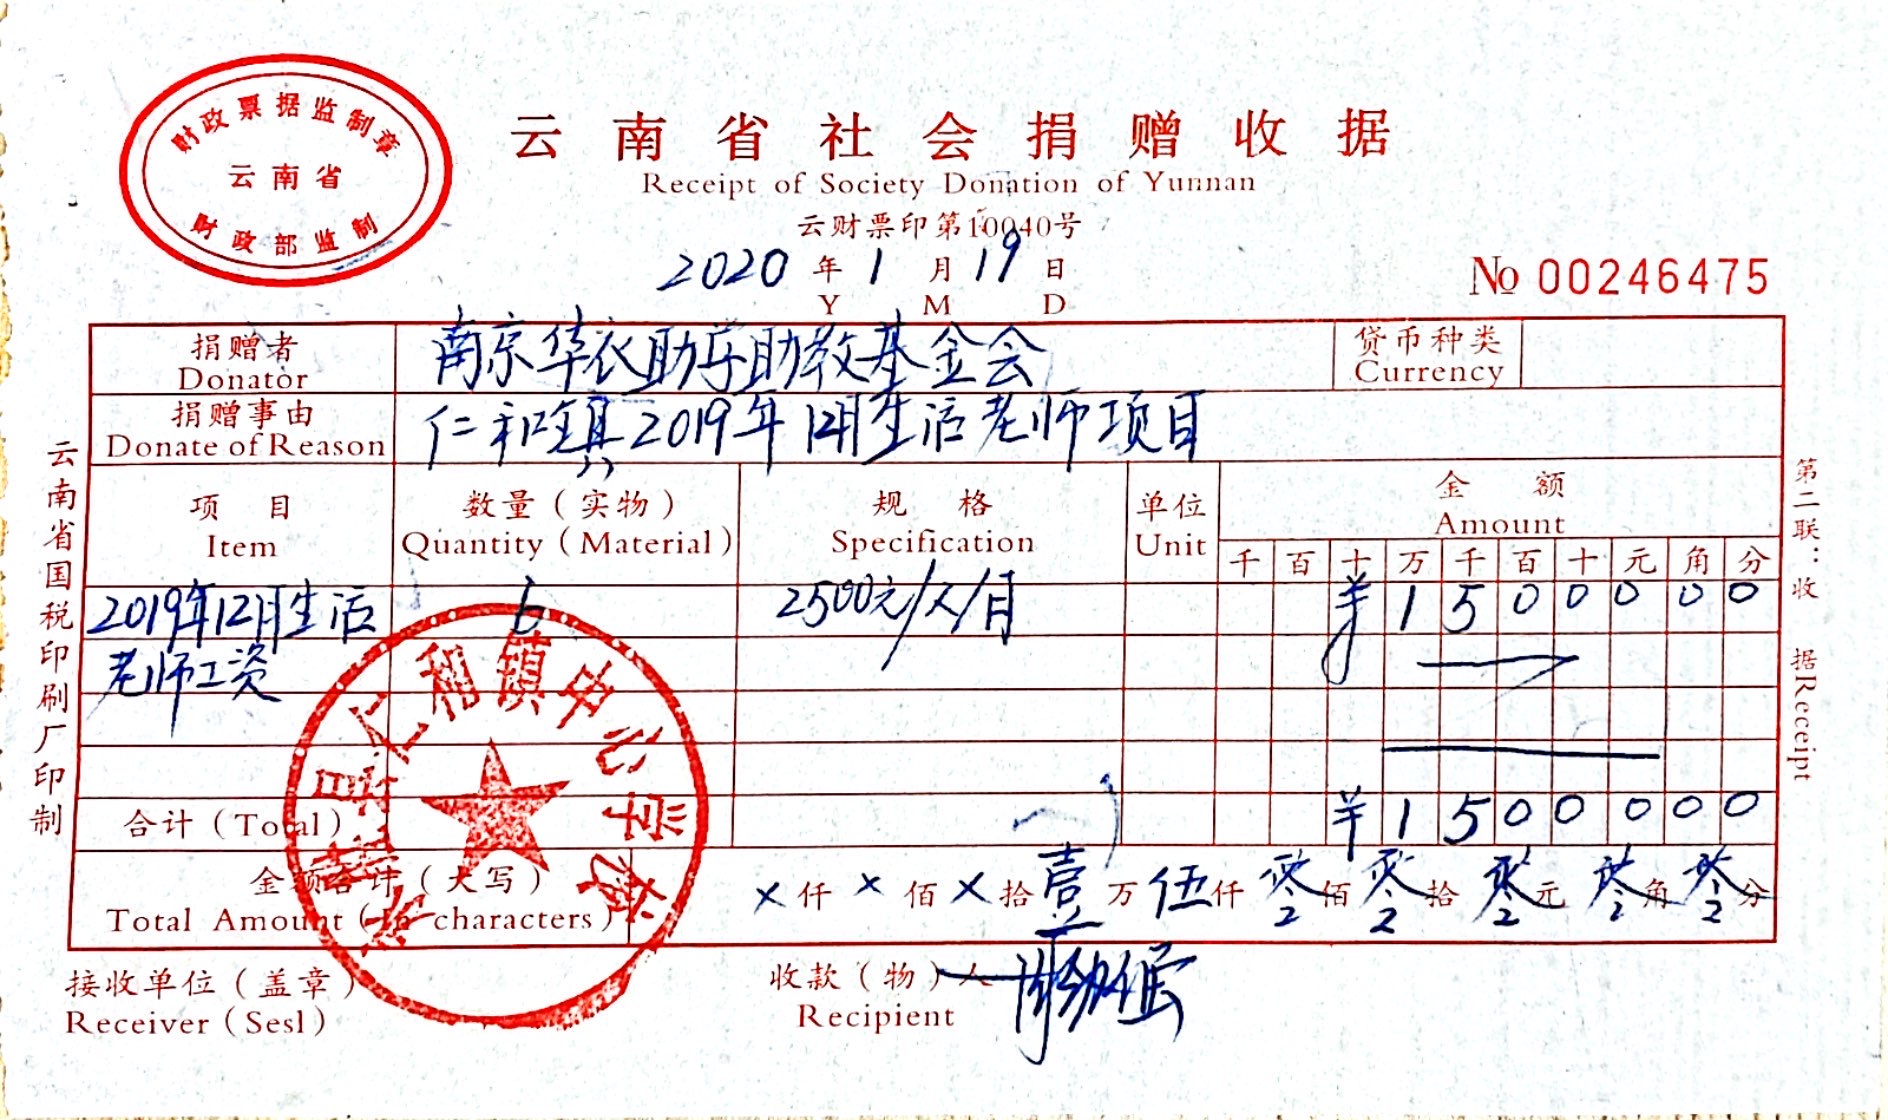 财政票据监制章
云南省
财政部监制
云南省社会捐赠收据
Receipt of Society Donation of Yunnan
云财票印第10040号
2020年1月19日
Y M D
№ 00246475
捐赠者 南京华衣助学助教基金会 货币种类
Donator Currency
捐赠事由 仁和镇2019年12月生活老师项目
Donate of Reason
项目 数量(实物) 规格 单位 金额
Item Quantity(Material) Specification Unit Amount
千 百 十 万 千 百 十 元 角 分
2019年12月生活 6 2500元/人/月 ¥ 1 5 0 0 0 0 0
老师工资
合计(Total) ¥ 1 5 0 0 0 0 0
金额合计(大写) ×仟×佰×拾壹万伍仟零佰零拾零元零角零分
Total Amount(In characters)
接收单位(盖章) 收款(物)人
Receiver(Sesl) Recipient
县仁和镇中心学校
云南省国税印刷厂印制
第二联:收据Receipt